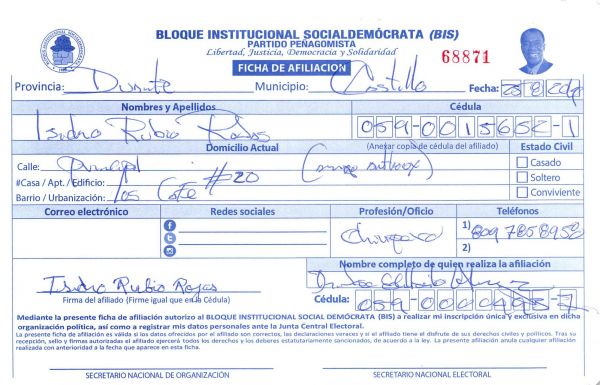 BLOQUE INSTITUCIONAL SOCIALDEMÓCRATA (BIS)
PARTIDO PEÑAGOMISTA
Libertad, Justicia, Democracia y Solidaridad
68871
FICHA DE AFILIACION
Provincia: Duarte Municipio: Castillo Fecha:
Nombres y Apellidos Cédula
Isidro Rubio Rojas 059-0015652-1
Domicilio Actual (Anexar copia de cédula del afiliado) Estado Civil
Calle: Principal
Casado
#Casa / Apt. / Edificio: #20
Soltero
Barrio / Urbanización: Los Café
Conviviente
Correo electrónico Redes sociales Profesión/Oficio Teléfonos
1) 809 785 8958
2)
Nombre completo de quien realiza la afiliación
Isidro Rubio Rojas
Firma del afiliado (Firme igual que en la Cédula) Cédula: 059-
Mediante la presente ficha de afiliación autorizo al BLOQUE INSTITUCIONAL SOCIAL DEMÓCRATA (BIS) a realizar mi inscripción única y exclusiva en dicha
organización política, así como a registrar mis datos personales ante la Junta Central Electoral.
La presente ficha de afiliación es válida si los datos ofrecidos por el afiliado son correctos, las declaraciones veraces y si el afiliado tiene el disfrute de sus derechos civiles y políticos. Tras su
recepción, sello y firmas autorizadas el afiliado ejercerá todos los derechos y los deberes estatutariamente sancionados, de acuerdo a la ley. La presente afiliación anula cualquier afiliación
realizada con anterioridad a la fecha que aparece en esta ficha.
SECRETARIO NACIONAL DE ORGANIZACIÓN SECRETARIO NACIONAL ELECTORAL